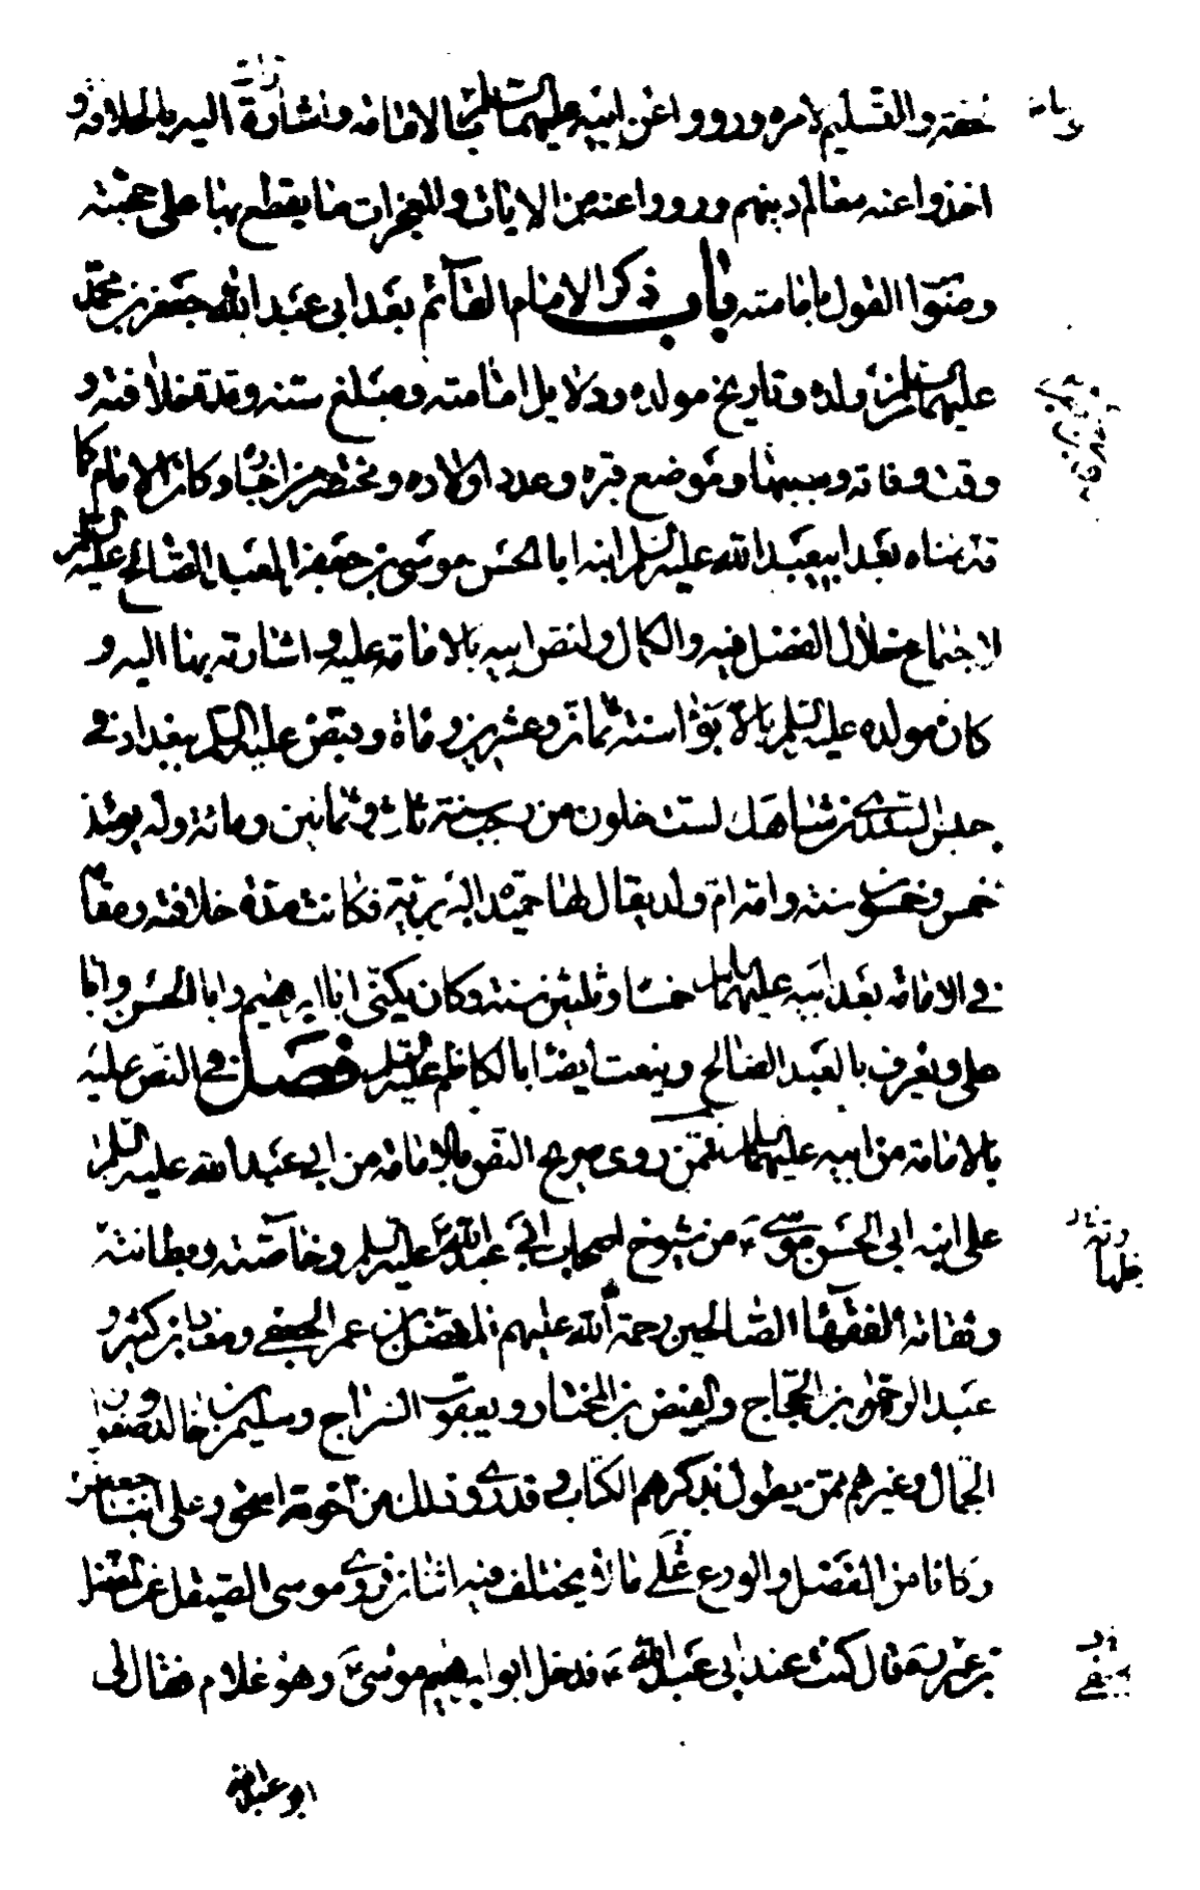 حقه والتسليم لامره ورووا عن ابيه عليهما السلم بالامامة واشارة اليه بالخلافة و
اخذوا عنه معالم دينهم ورووا عنه من الايات والمعجزات ما يقطع بها على حجته
وصواب القول بامامته باب ذكر الامام القآئم بعد ابي عبد الله جعفر بن محمد
عليهما السلم من ولده وتاريخ مولده ودلايل امامته ومبلغ سنه ومدة خلافته و
وقت وفاته وسببها وموضع قبره وعدد اولاده ومختصر من اخباره وكان الامام كا
قدمناه بعد ابي عبد الله عليه السلم ابنه ابا الحسن موسى بن جعفر العبد الصالح عليه السلم
لاجتماع خلال الفضل فيه والكمال ولنص ابيه بالامامة عليه واشارته بها اليه و
كان مولده عليه السلم بالابوا سنة ثمان وعشرين ومأة وقبض عليه السلم ببغداد في
حبس السندي بن شاهك لست خلون من رجب سنة ثلث وثمانين ومائة وله يومئذ
خمس وخمسون سنة وامه ام ولد يقال لها حميدة البربرية فكانت مدة خلافته ومقامه
في الامامة بعد ابيه عليهما السلم خمسا وثلثين سنة وكان يكنى ابا ابرهيم وابا الحسن وابا
على ويعرف بالعبد الصالح وينعت ايضا بالكاظم عليه السلم فصل في النص عليه
بالامامة من ابيه عليهما السلم فممن روى صريح النص بالامامة من ابي عبد الله عليه السلم
على ابنه ابي الحسن موسى ع من شيوخ اصحاب ابي عبد الله عليه السلم وخاصته وبطانته
وثقاته الفقهآء الصالحين رحمة الله عليهم المفضل بن عمر الجعفي ومعاذ بن كثير و
عبد الرحمن بن الحجاج والفيض بن المختار ويعقوب السراج وسليمن بن خالد وصفوان
الجمال وغيرهم ممن يطول بذكرهم الكتاب وقد روى ذلك من اخوته اسحق وعلى ابنا جعفر
وكانا من الفضل والورع على ما لا يختلف فيه اثنان فروى موسى الصيقل عن المفضل
بن عمر ره قال كنت عند ابي عبد الله ع فدخل ابو ابرهيم موسى ع وهو غلام فقال لي
ابو عبد الله